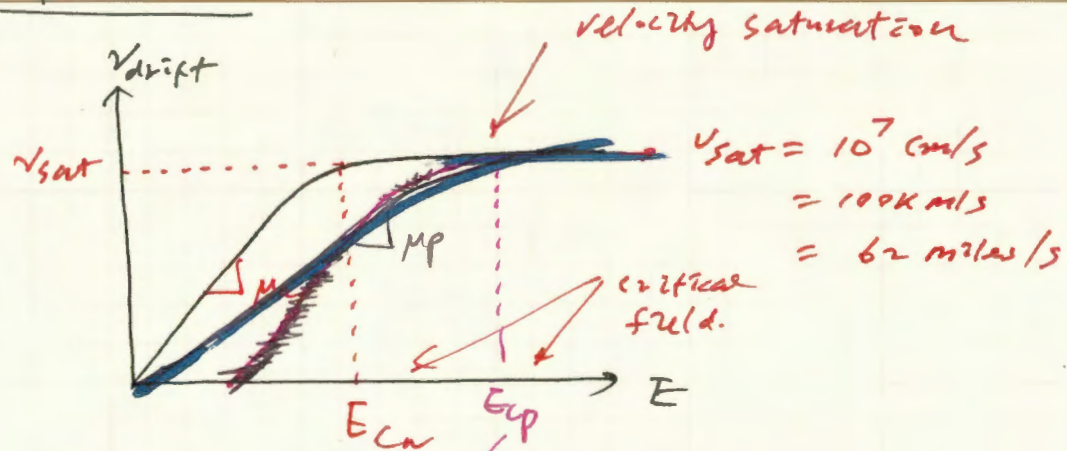 velocity saturation
v_drift
v_sat
v_sat = 10^7 cm/s
= 100K m/s
= 62 miles/s
μ_p
μ
critical
field.
E_cn
E_cp
E